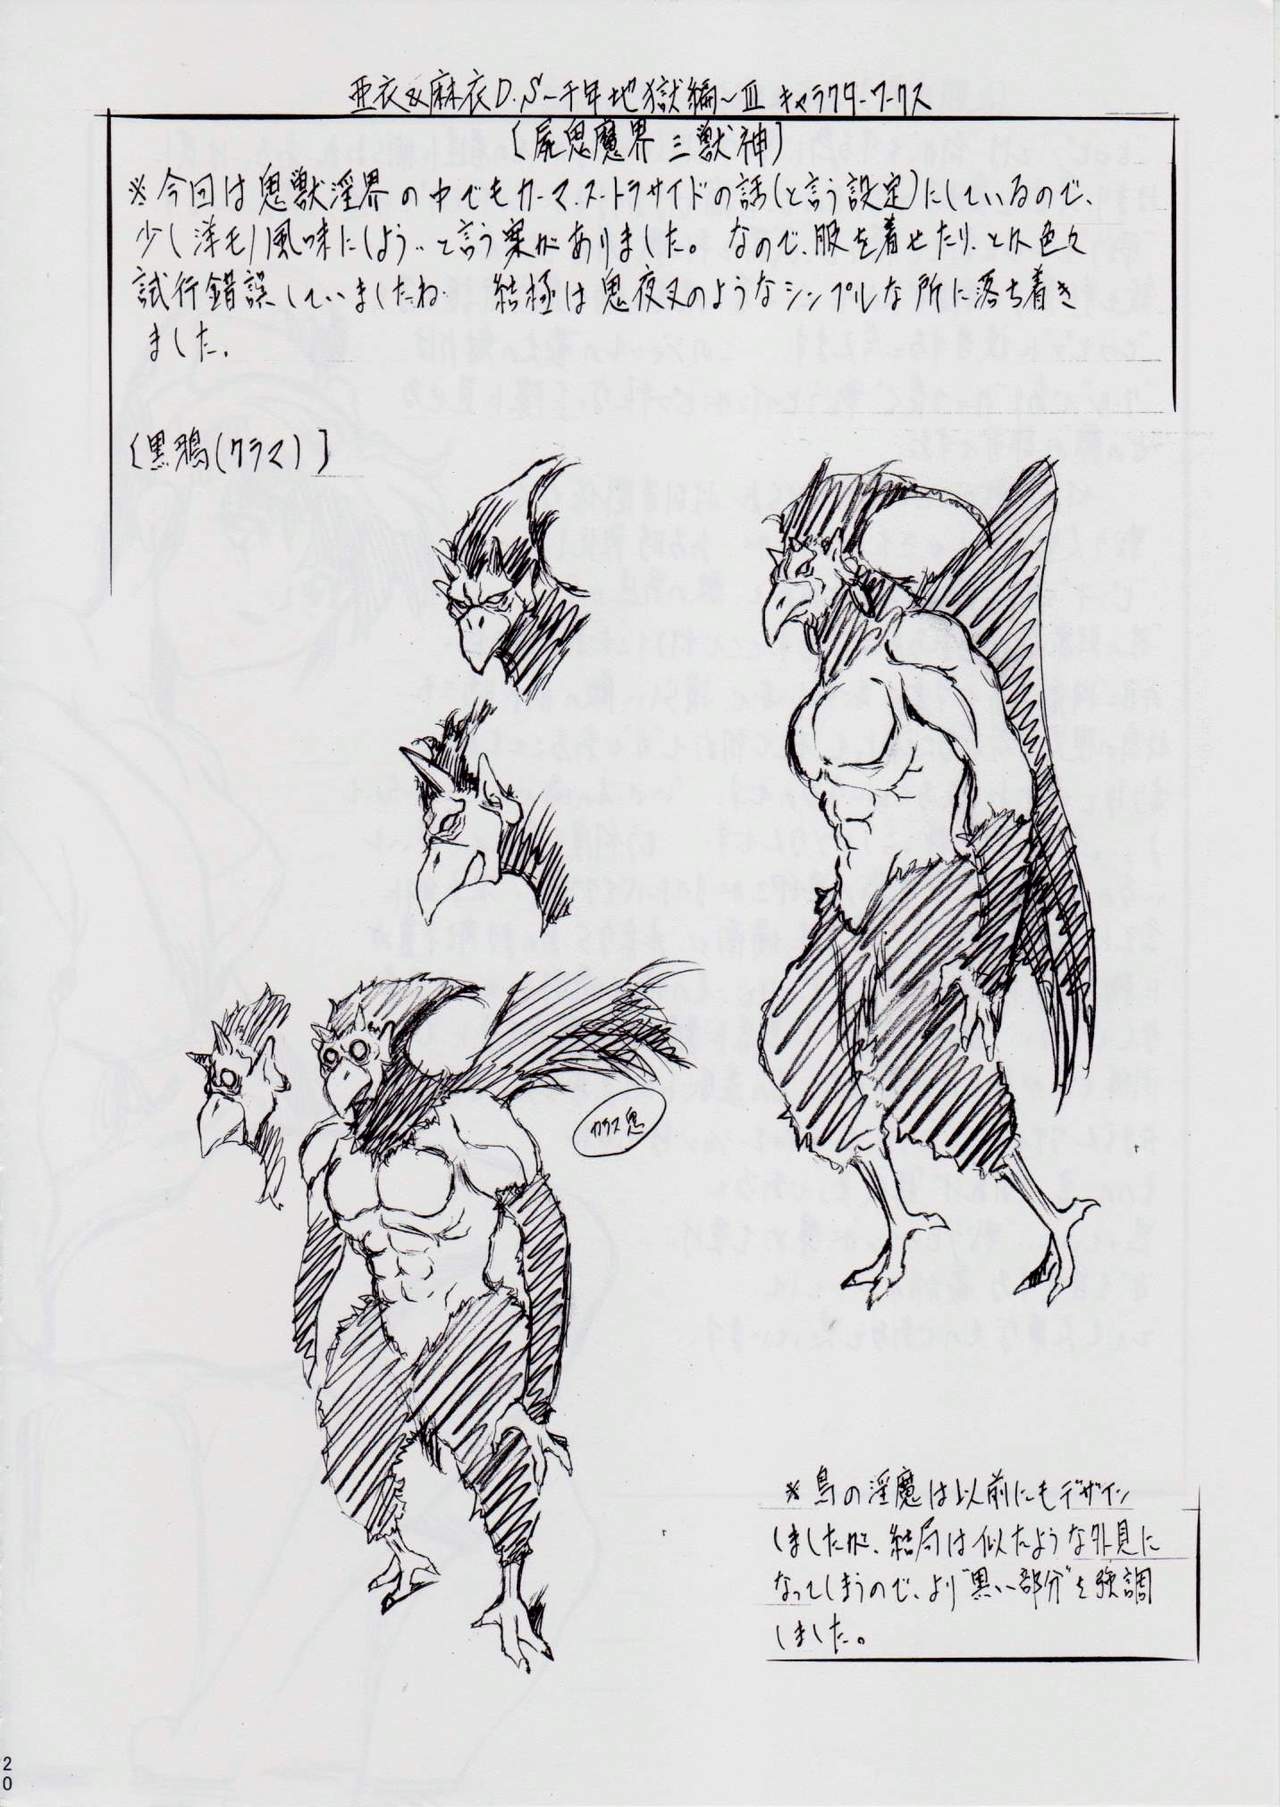 亜衣&麻衣D.S～千年地獄編～Ⅲ キャラクターワークス
〔屍鬼魔界 三獣神〕
※今回は鬼獣淫界の中でもカーマ・スートラサイドの話(と言う設定)にしているので、
少し洋モノ風味にしよう‥と言う案がありました。なので、服を着せたり、とか色々
試行錯誤していましたね 結極は鬼夜叉のようなシンプルな所に落ち着き
ました。
〔黒鴉(クラマ)〕
カラス鬼
※鳥の淫魔は以前にもデザイン
しましたが、結局は似たような外見に
なってしまうので、より"黒い部分"を強調
しました。
20